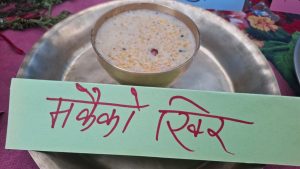 मकैको खिर